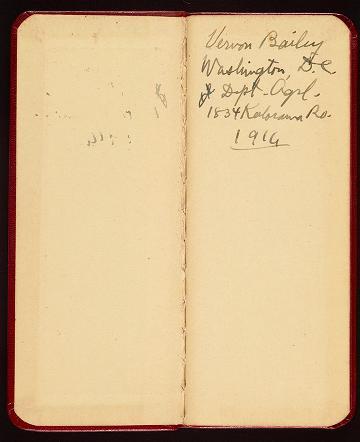 Vernon Bailey
Washington, D.C.
Dept. Agrl.
1834 Kalorama Ro.
1914